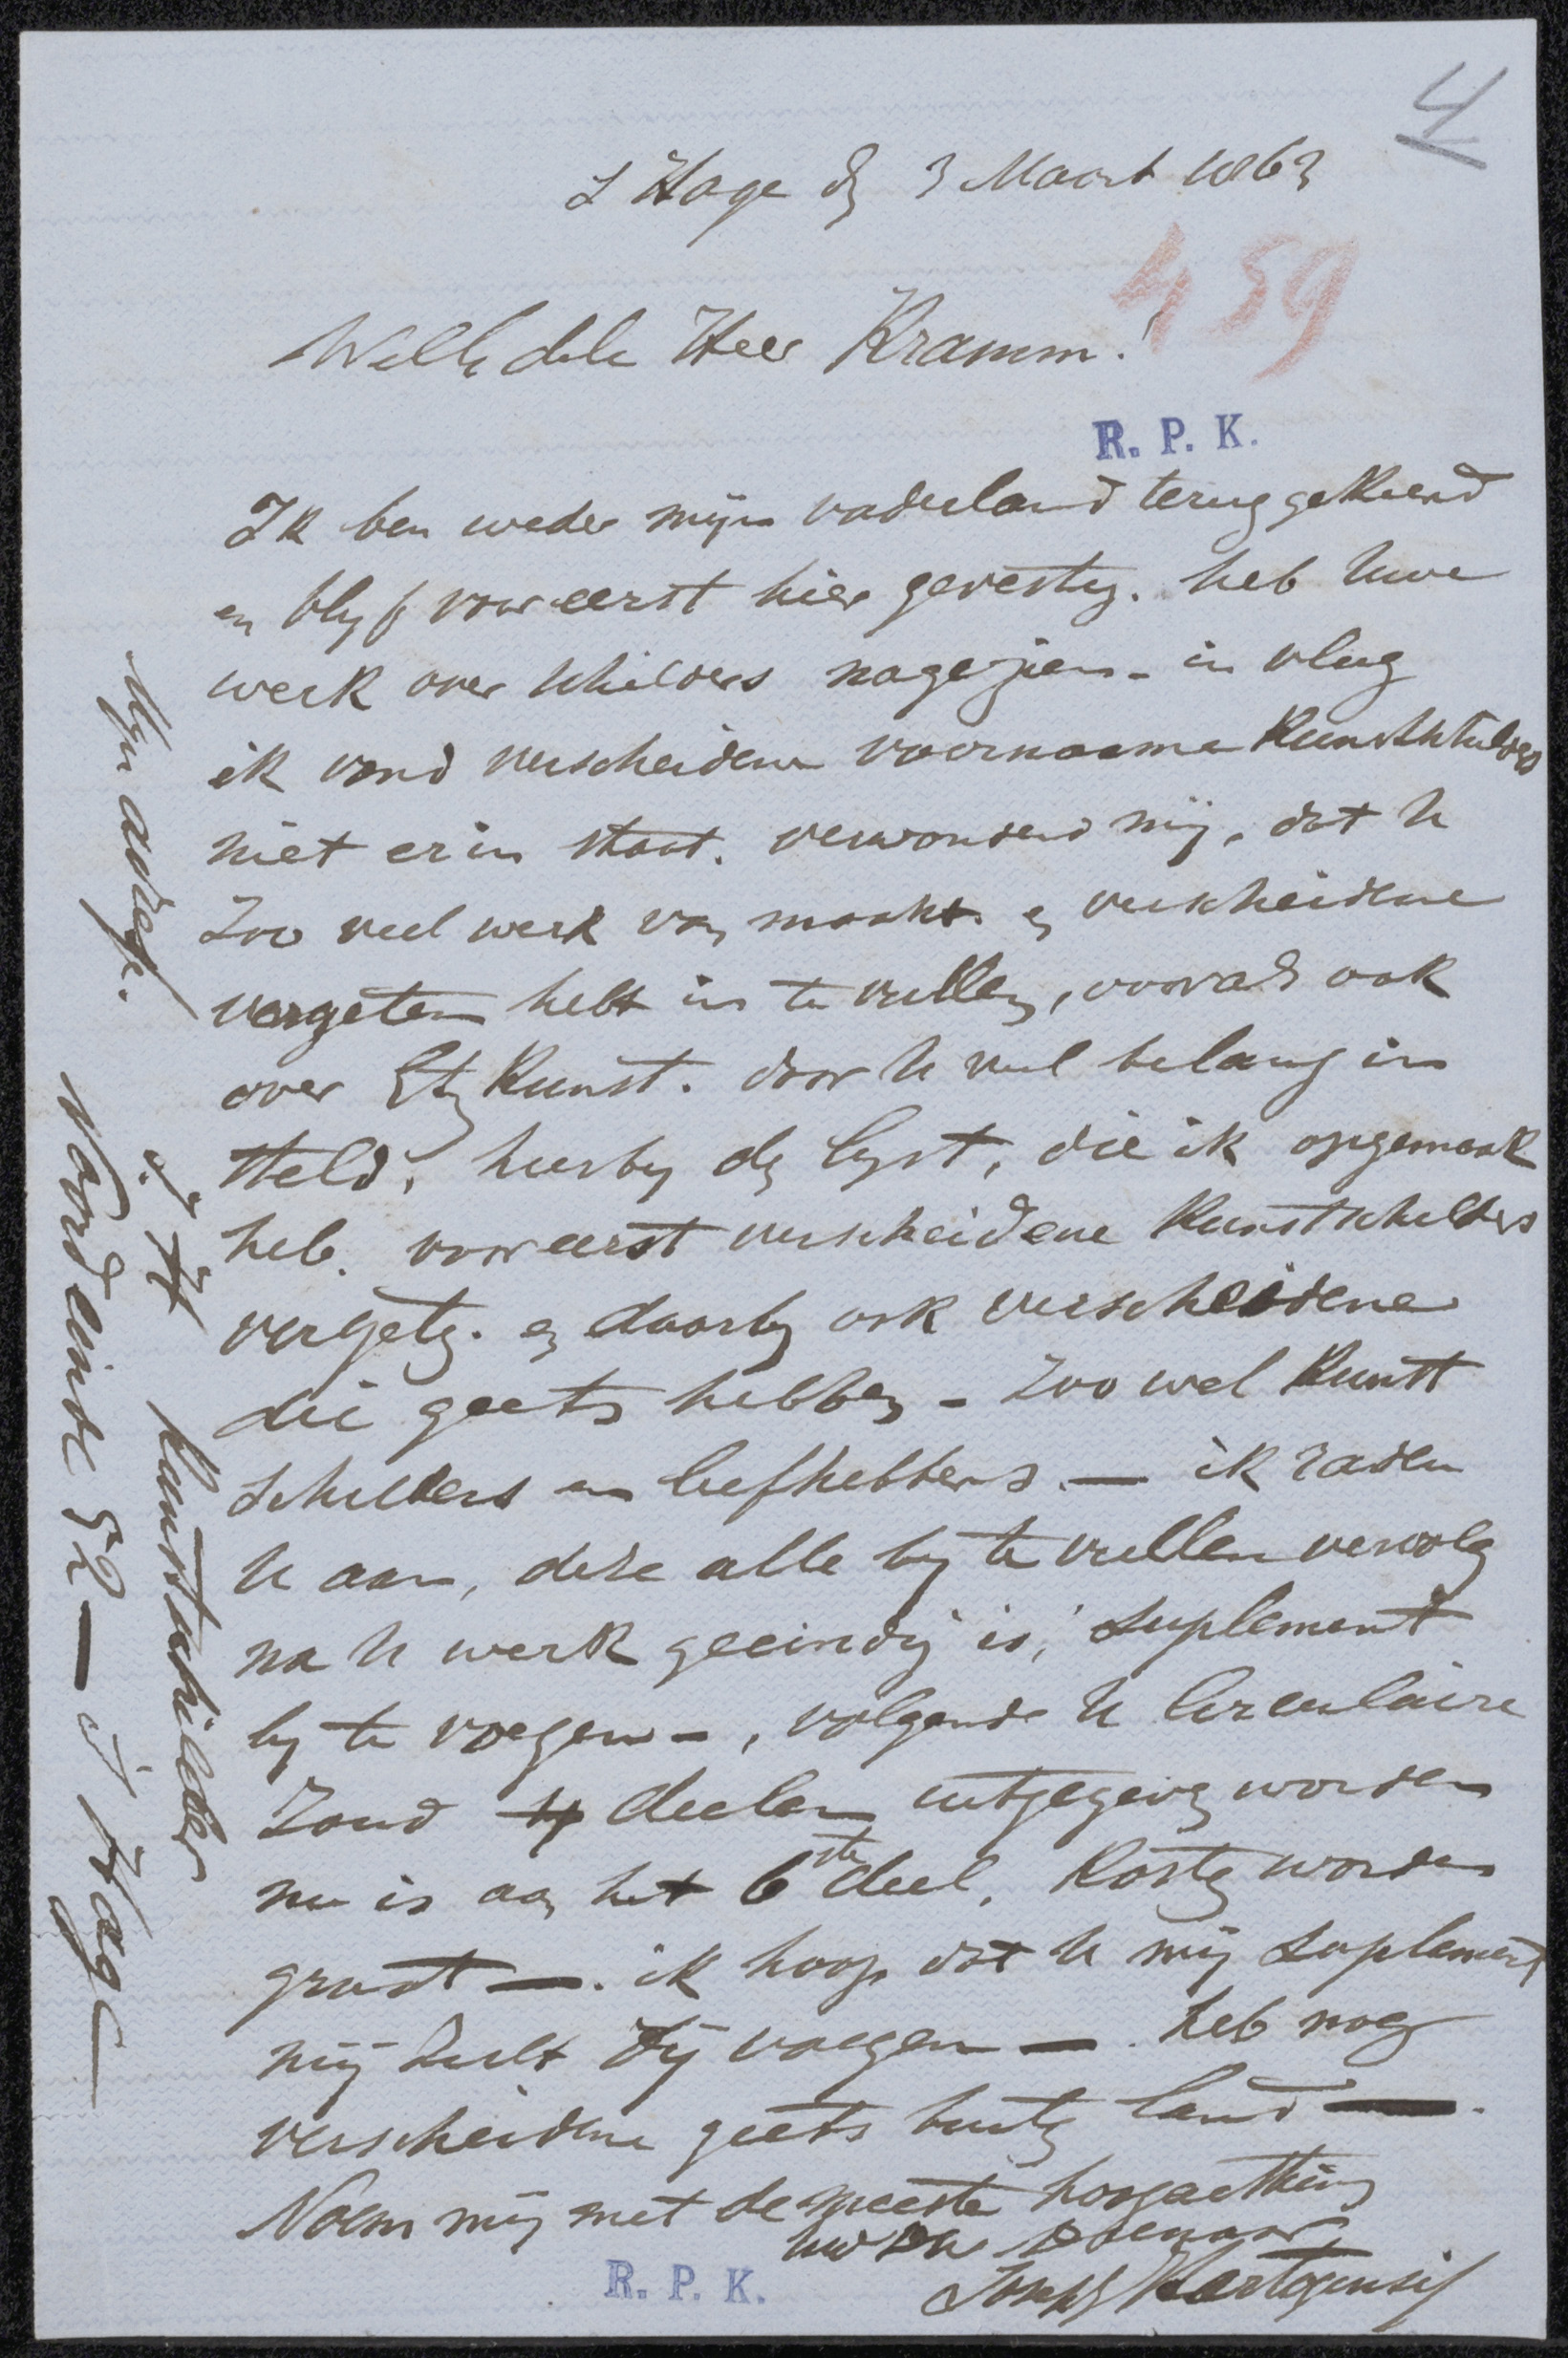 4
s Hage dn 3 Maart 1863
459
WelEdele Heer Kramm!
R. P. K.
Ik ben weder mijn vaderland teruggekeerd
en blyf vooreerst hier gevestig. heb Uwe
werk over schilders nagezien - in vlug
ik vond verscheidene voornaame Kunstschilders
niet erin staat. verwonderd mij, dat U
Zoo veel werk van maakt. en verscheidene
vergeten hebt in te vullen, vooral ook
over Etz Kunst. door U veel belang in
steld, hierby de lyst, die ik opgemaak
heb. vooreerst verscheidene Kunstschilders
vergeten. en daarby ook verscheidene
die geets hebben - Zoo wel Kunst
Schilders en liefhebbers — ik raden
U aan, deze alle by te vullen vervolg
na U werk geeindig is, Suplement
by te voegen -, volgende U Circulaire
Zoud 4 deelen uitgegeven worden
nu is aan het 6ste deel. Kosten worden
groot —. ik hoop dat U mij Suplement
mij zult bij voegen —. heb nog
verscheidene geets buiten land —.
Noem mij met de meeste hoogachting
uw dienaar
Joseph Hartogensis
R. P. K.
Myn adres.
J. H Kunstschilder
Noordeinde 52 — s Hage